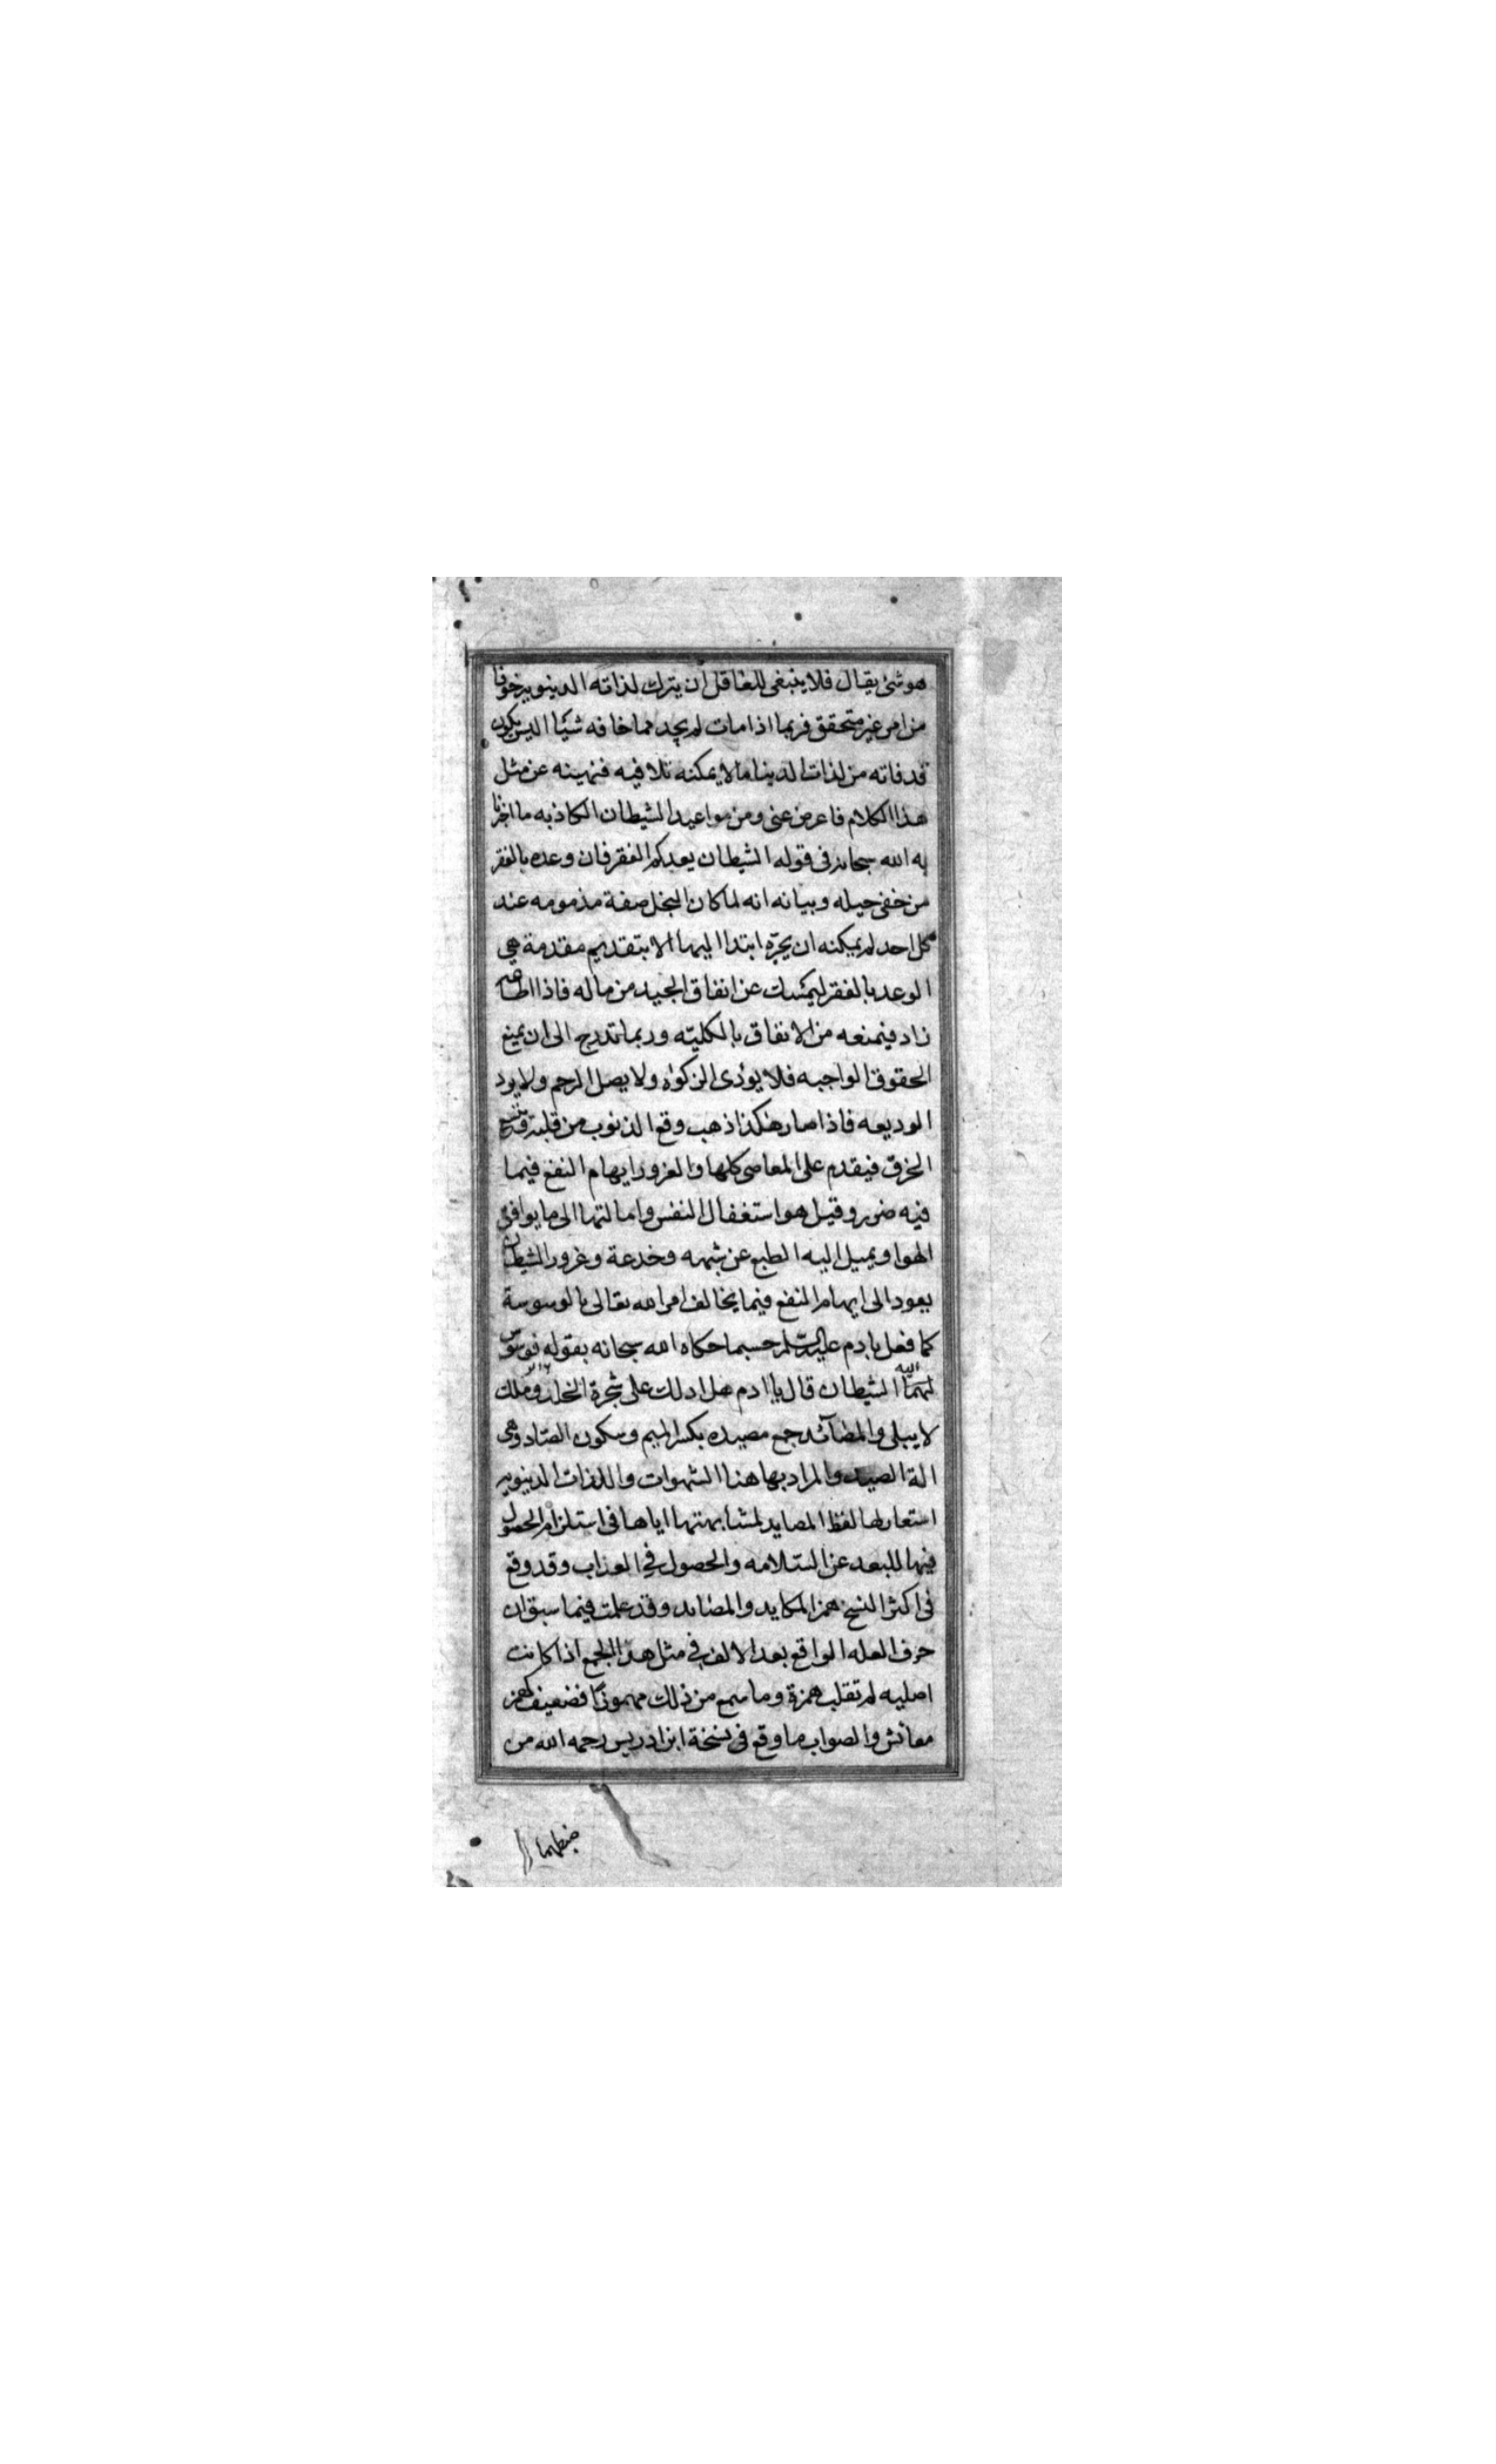 هو شئ يقال فلا ينبغى للعاقل ان يترك لذاته الدنيويه خوفا
من امر غير متحقق فربما اذا مات لم يجد مما خافه شيئا اليس يكون
قد فاته من لذات الدنيا ما لا يمكنه تلافيه فنهينه عن مثل
هذا الكلام فاعرض عنى ومن مواعيد الشيطان الكاذبه ما اخبرنا
به الله سبحانه فى قوله الشيطان يعدكم الفقر فان وعده بالفقر
من خفى حيله وبيانه انه لما كان البخل صفة مذمومه عند
كل احد لم يمكنه ان يجرّه ابتدا اليها الا بتقديم مقدمة هي
الوعد بالفقر ليمسك عن انفاق الجيد من ماله فاذا اطاعه
زاد فيمنعه من الانفاق بالكليّه وربما تدرج الى ان يمنع
الحقوق الواجبه فلا يؤدى الزكوة ولا يصل الرحم ولا يرد
الوديعه فاذا صار هكذا ذهب وقع الذنوب من قلبه
الخرق فيقدم على المعاصى كلها والغرور ايهام النفع فيما
فيه ضرر وقيل هو استغفال النفس وامالتها الى ما يوافق
الهوا ويميل اليه الطبع عن شبهه وخدعة وغرور الشيطان
يعود الى ايهام النفع فيما يخالف امر الله تعالى بالوسوسة
كما فعل بادم عليه السّلم حسبما حكاه الله سبحانه بقوله فوسوس
اليه الشيطان قال يا ادم هل ادلك على شجرة الخلد وملك
لا يبلى والمصآئد جمع مصيده بكسر الميم وسكون الصّاد وهى
الة الصيد والمراد بها هنا الشهوات واللذات الدنيويه
استعار لها لفظ المصايد لمشابهتها اياها فى استلزام الحصول
فيها للبعد عن السّلامه والحصول في العذاب وقد وقع
فى اكثر النسخ همز المكايد والمصائد وقد علمت فيما سبق ان
حرف العله الواقع بعد الالف في مثل هذا الجمع اذا كانت
اصليه لم تقلب همزة وما سمع من ذلك مهموزًا فضعيف كهمز
معائش والصواب ما وقع فى نسخة ابن ادريس رحمه الله من
ضبطهما